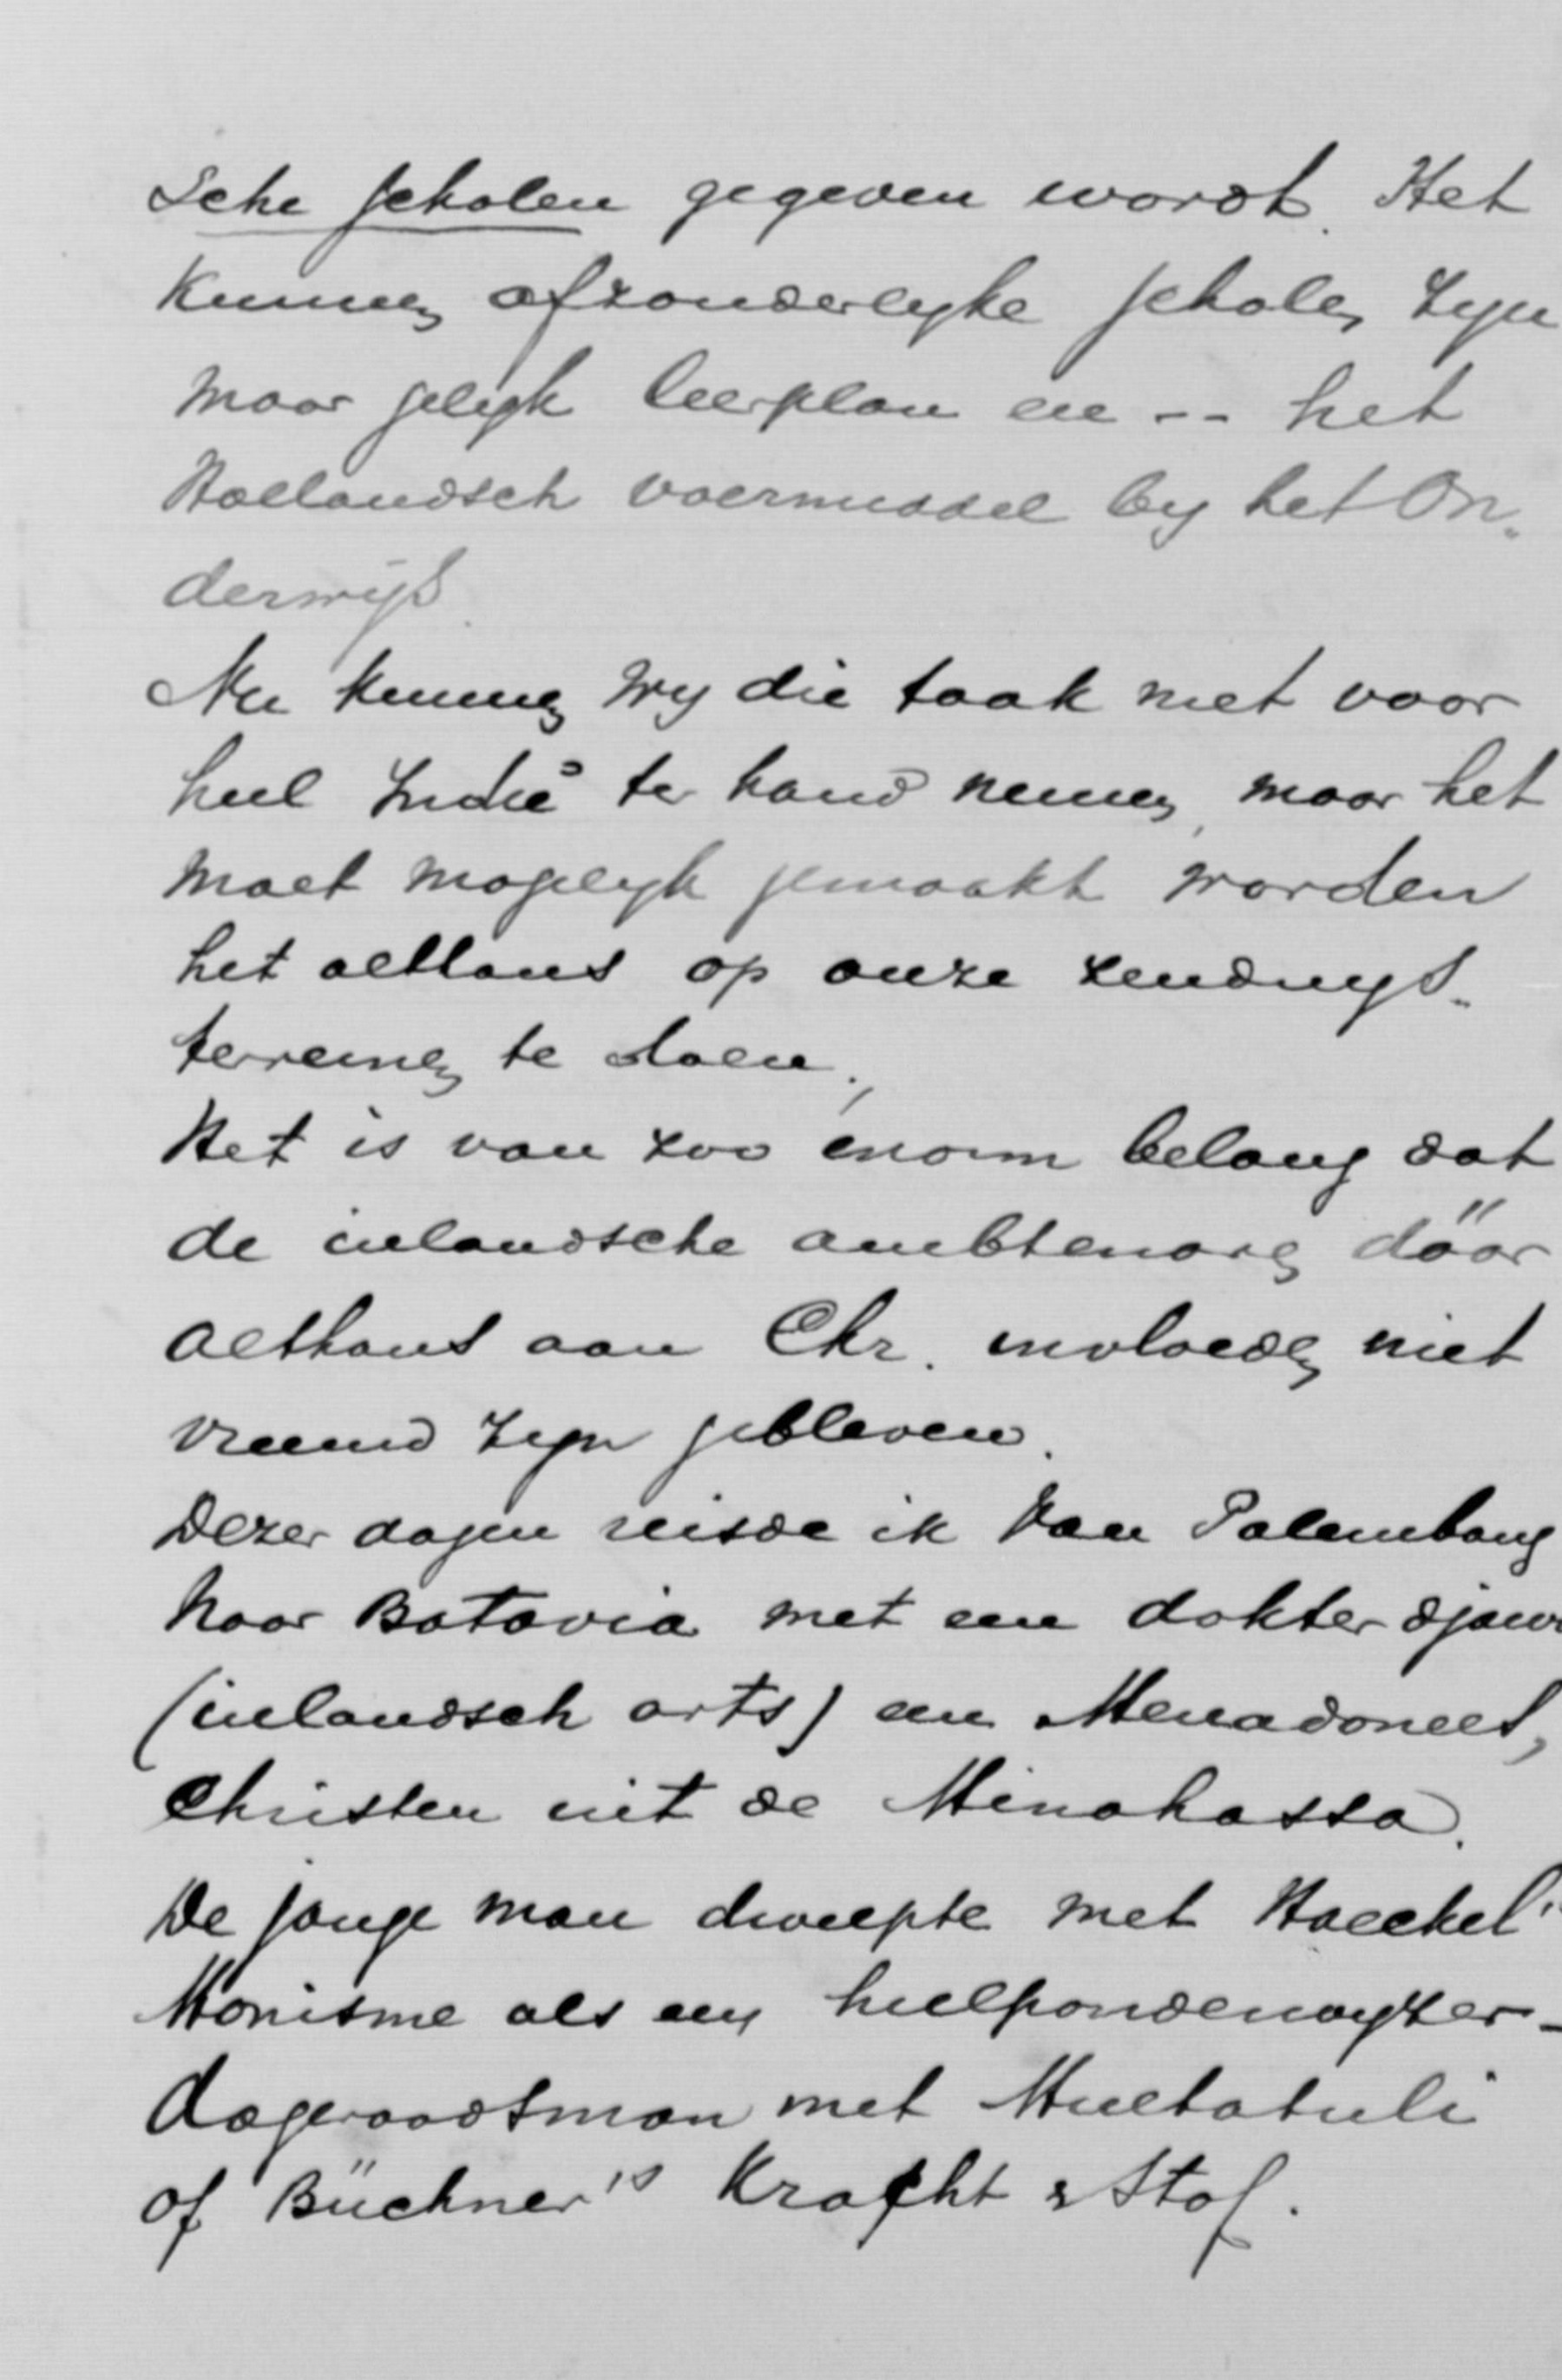 sche scholen gegeven wordt. Het
kunnen afzonderlyke scholen zyn
maar gelyk leerplan en -- het
Hollandsch voermiddel by het On-
derwijs.
Nu kunnen wy die taak niet voor
heel Indië ter hand nemen, maar het
moet mogelyk gemaakt worden
het althans op onze zendings-
terreinen te doen.
Het is van zoo énorm belang dat
de inlandsche ambtenaren dóór
althans aan Chr. invloeden niet
vreemd zyn gebleven.
Dezer dagen reisde ik van Palembang
naar Batavia met een dokter djawa
(inlandsch arts) een Menadonees,
Christen uit de Minahassa.
De jonge man dweepte met Haeckel's
Monisme als een hulponderwyzer-
dageraadsman met Multatuli
of Büchner's Kracht & Stof.